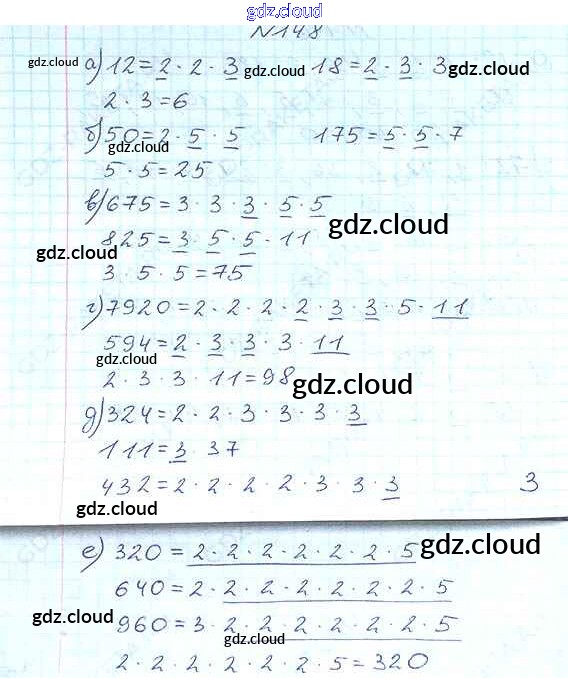 gdz.cloud
N148
gdz.cloud а) 12 = 2 · 2 · 3 gdz.cloud 18 = 2 · 3 · 3 gdz.cloud
2 · 3 = 6
б) 50 = 2 · 5 · 5 175 = 5 · 5 · 7
gdz.cloud
5 · 5 = 25
в) 675 = 3 · 3 · 3 · 5 · 5
gdz.cloud
825 = 3 · 5 · 5 · 11
gdz.cloud
3 · 5 · 5 = 75
г) 7920 = 2 · 2 · 2 · 2 · 3 · 3 · 5 · 11
594 = 2 · 3 · 3 · 3 · 11
gdz.cloud
2 · 3 · 3 · 11 = 98
gdz.cloud
д) 324 = 2 · 2 · 3 · 3 · 3 · 3
gdz.cloud
111 = 3 · 37
432 = 2 · 2 · 2 · 2 · 3 · 3 · 3 3
gdz.cloud
е) 320 = 2 · 2 · 2 · 2 · 2 · 2 · 5 gdz.cloud
640 = 2 · 2 · 2 · 2 · 2 · 2 · 2 · 5
gdz.cloud
960 = 3 · 2 · 2 · 2 · 2 · 2 · 2 · 5
gdz.cloud
2 · 2 · 2 · 2 · 2 · 2 · 5 = 320